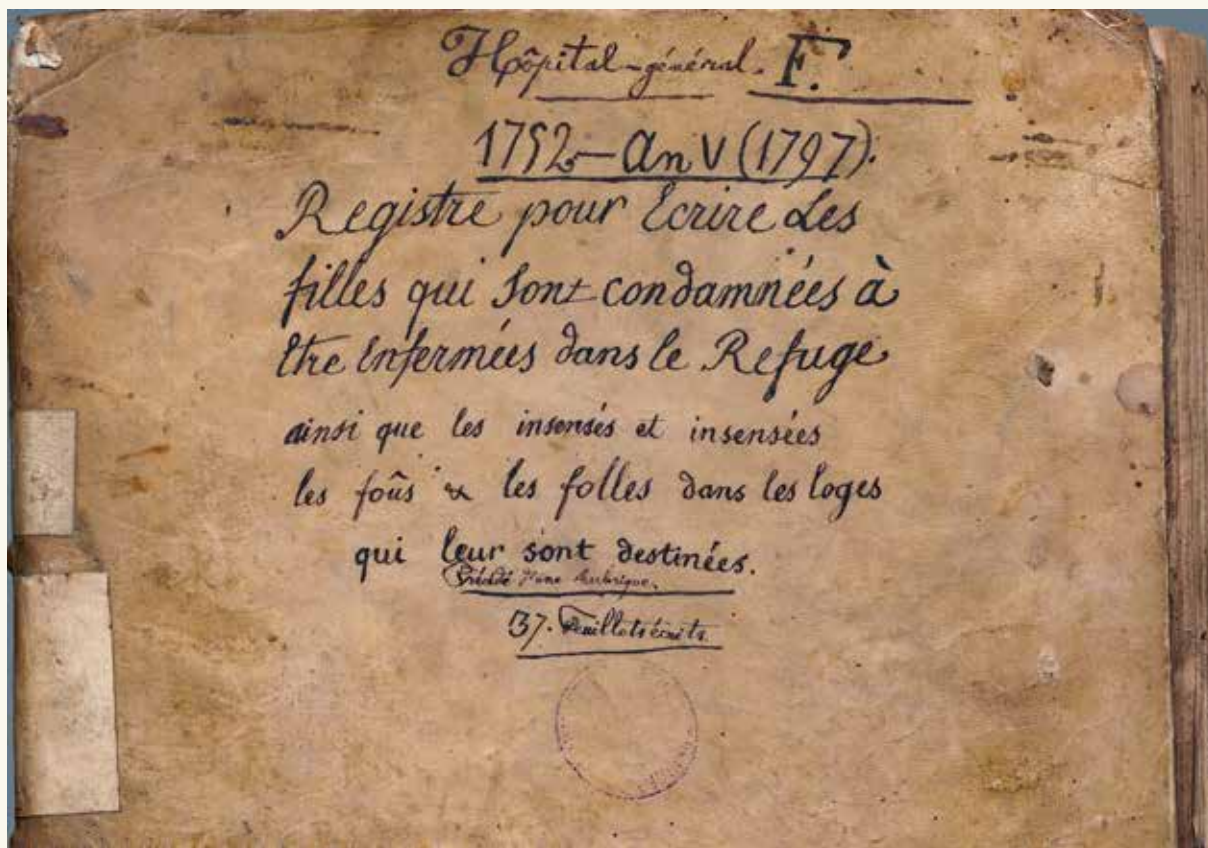 Hôpital-général. F.
1752 - An V (1797).
Registre pour Ecrire Les
filles qui Sont condamnées à
Etre Enfermées dans le Refuge
ainsi que les insensés et insensées
les foûs & les folles dans les loges
qui leur sont destinées.
Précédé d'une Rubrique.
37. Feuillets écrits.